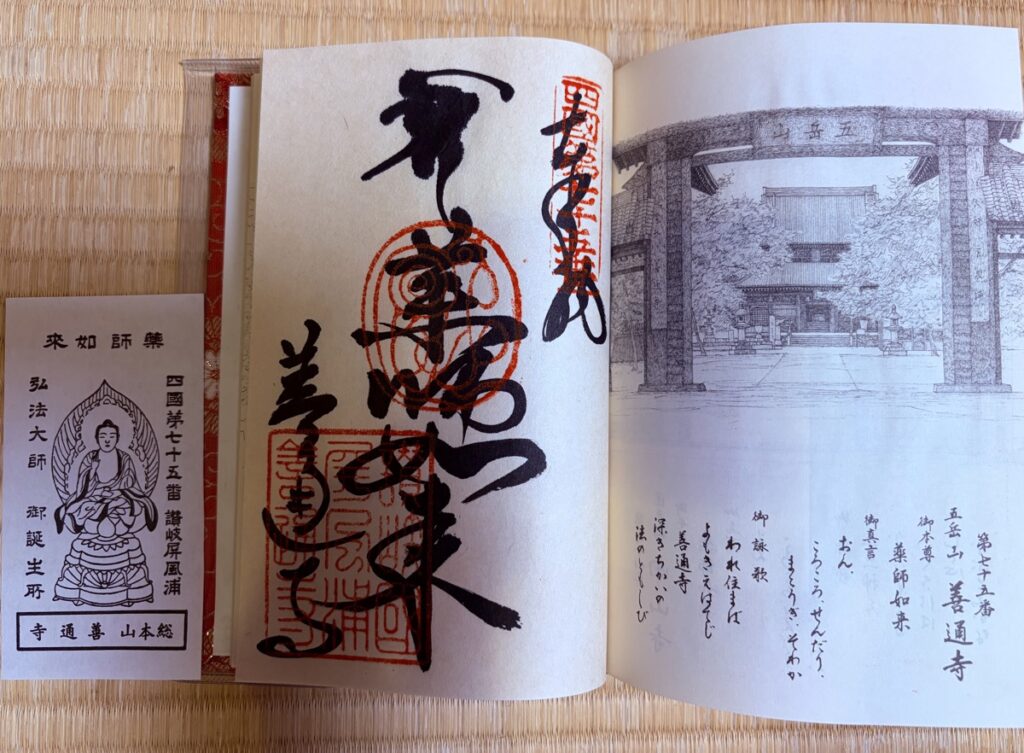 五岳山
第七十五番
五岳山 善通寺
御本尊
薬師如来
御真言
おん
ころころ、せんだり、
まとうぎ、そわか
御詠歌
われ住まば
よもきえはてじ
善通寺
深きちかいの
法のともしび
四國第七十五番
薬師如来
善通寺
藥師如来
四國第七十五番 讃岐屏風浦
弘法大師 御誕生所
総本山 善通寺